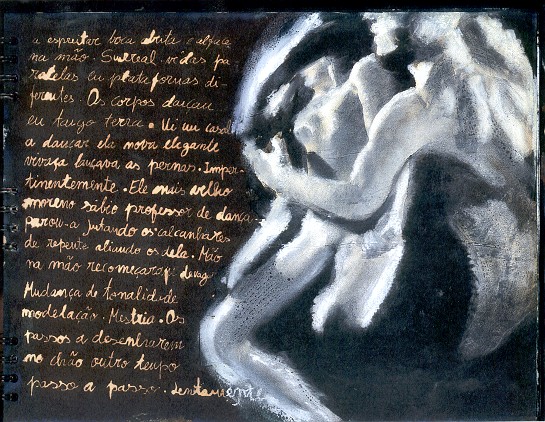 a espreitar boca aberta e alface
na mão Surreal vidas pa
ralelas em plataformas di
ferentes. Os corpos dançam
eu tango terra. Vi um casal
a dançar ela nova elegante
vivaça lançava as pernas. Imper-
tinentemente. Ele mais velho
moreno sábio professor de dança.
parou-a juntando os calcanhares
de repente aliando os dela. Mão
na mão recomeçar devagar
Mudança de tonalidade
modelação. Mestria. Os
passos a desenharem
no chão outro tempo
passo a passo. Lentamente